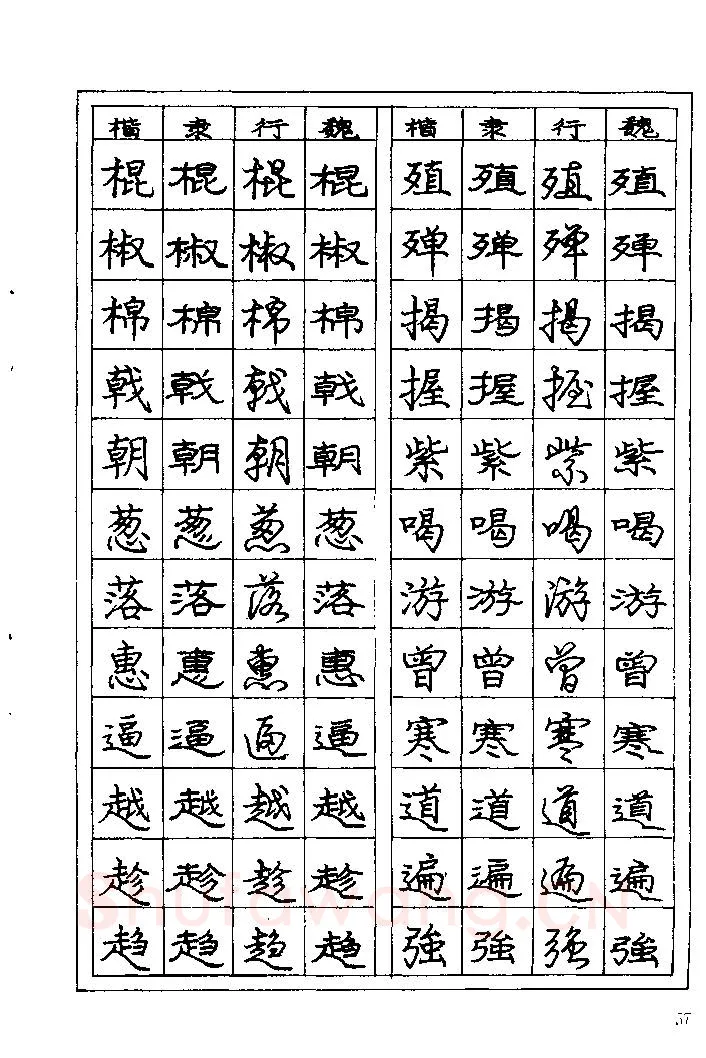 楷 隶 行 魏 楷 隶 行 魏
棍 棍 棍 棍 殖 殖 殖 殖
椒 椒 椒 椒 殚 殚 殚 殚
棉 棉 棉 棉 揭 揭 揭 揭
戟 戟 戟 戟 握 握 握 握
朝 朝 朝 朝 紫 紫 紫 紫
葱 葱 葱 葱 喝 喝 喝 喝
落 落 落 落 游 游 游 游
惠 惠 惠 惠 曾 曾 曾 曾
逼 逼 逼 逼 寒 寒 寒 寒
越 越 越 越 道 道 道 道
趁 趁 趁 趁 遍 遍 遍 遍
趋 趋 趋 趋 強 強 强 強
Shufawang.CN
57